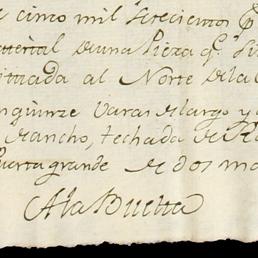 e cinco mil setecientos
material de una Pieza q.e
situada al Norte de la
quinze Varas de largo y
Rancho, techada de
Puerta grande de dos ma
A la Buelta